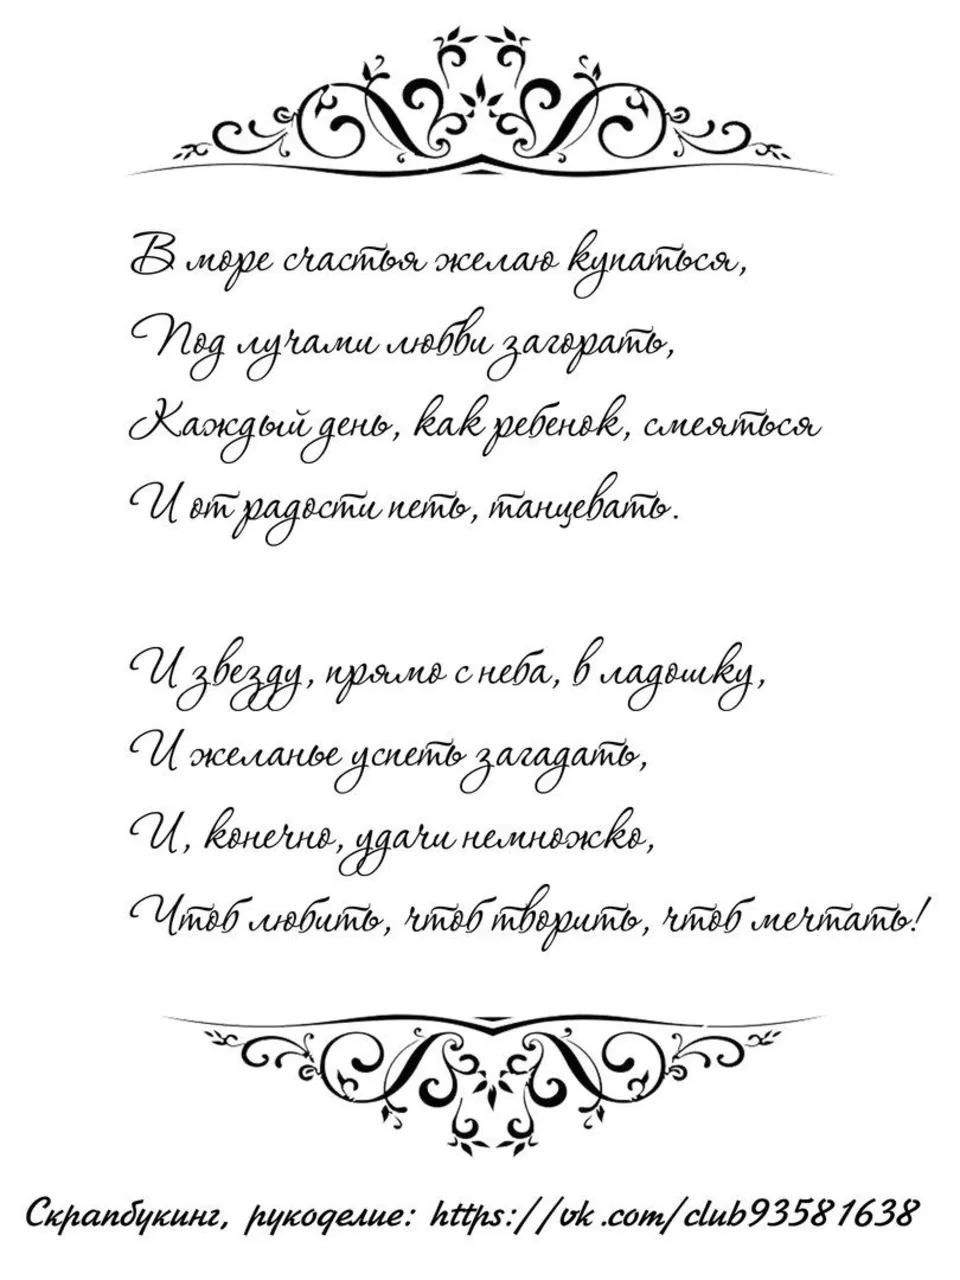 В море счастья желаю купаться,
Под лучами любви загорать,
Каждый день, как ребенок, смеяться
И от радости петь, танцевать.
И звезду, прямо с неба, в ладошку,
И желанье успеть загадать,
И, конечно, удачи немножко,
Чтоб любить, чтоб творить, чтоб мечтать!
Скрапбукинг, рукоделие: https://vk.com/club93581638